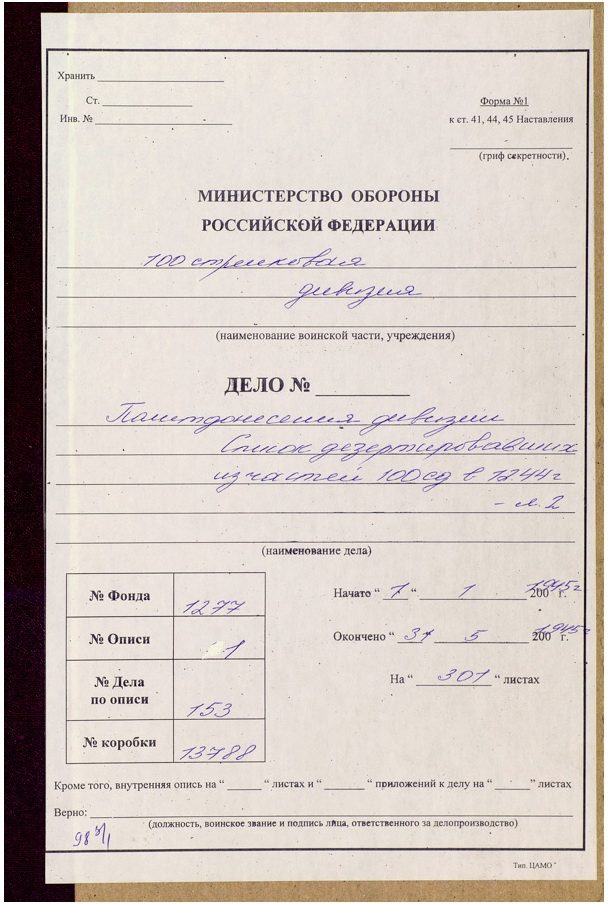 Хранить
Ст.
Инв. №
Форма №1
к ст. 41, 44, 45 Наставления
(гриф секретности)
МИНИСТЕРСТВО ОБОРОНЫ
РОССИЙСКОЙ ФЕДЕРАЦИИ
100 стрелковая
дивизия
(наименование воинской части, учреждения)
ДЕЛО №
Политдонесения дивизии
Список дезертировавших
из частей 100сд в 1244г
- л. 2
(наименование дела)
№ Фонда 1277
№ Описи 1
№ Дела
по описи 153
№ коробки 13788
Начато “ 7 “ 1 200 1945г г.
Окончено “ 31 5 200 1945г г.
На “ 301 “ листах
Кроме того, внутренняя опись на “ “ листах и “ “ приложений к делу на “ “ листах
Верно:
(должность, воинское звание и подпись лица, ответственного за делопроизводство)
Тип. ЦАМО